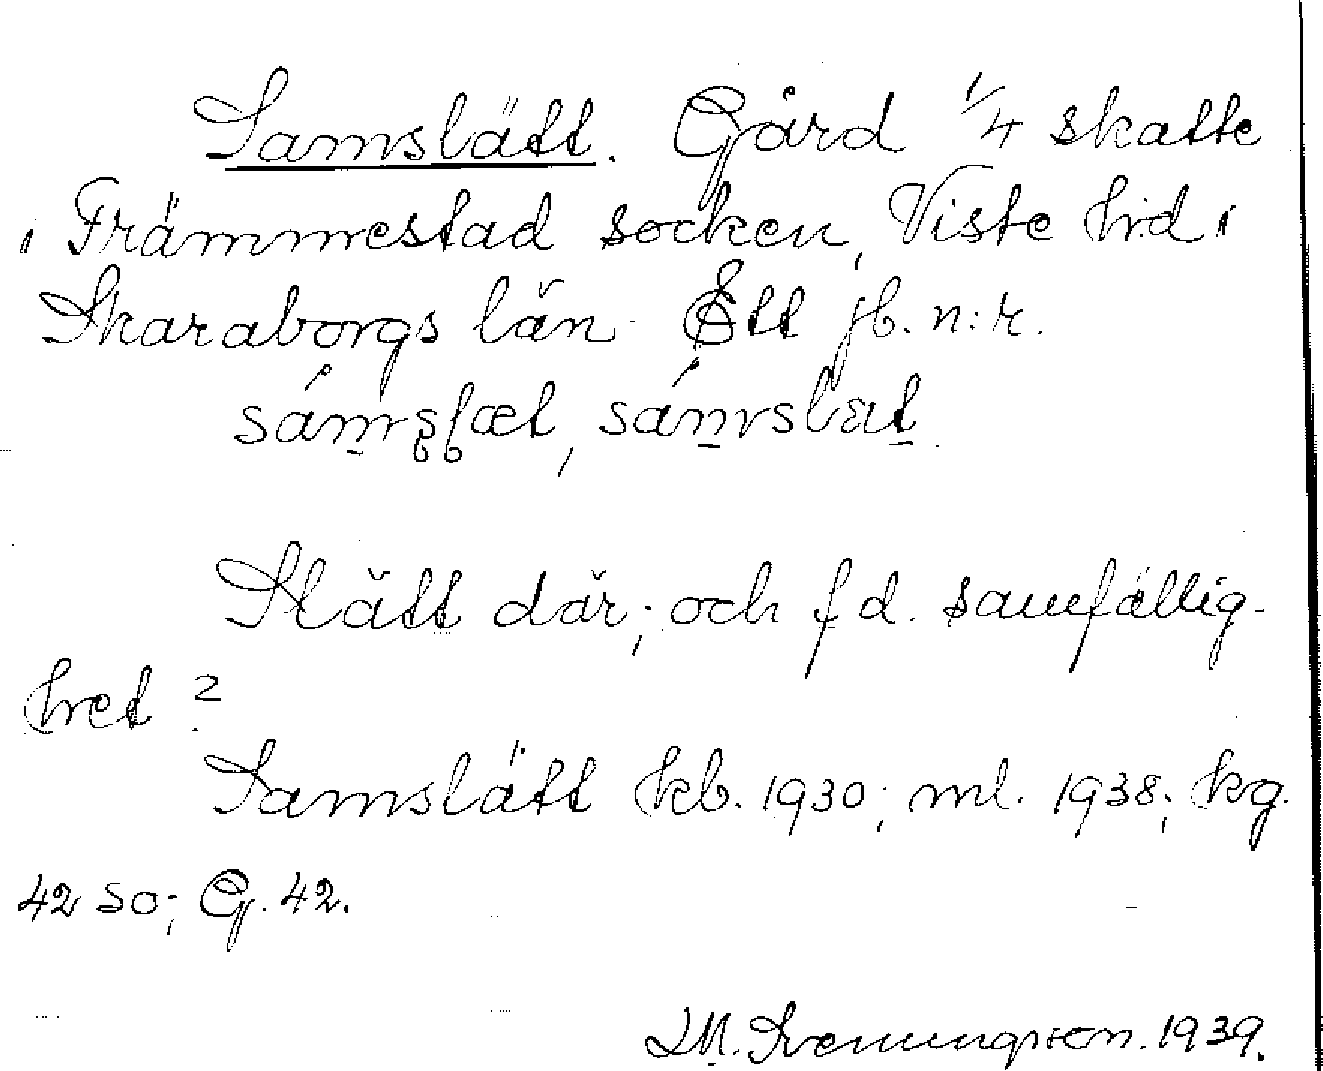 Samslätt. Gård 1/4 skatte
i Främmestad socken, Viste hd i
Skaraborgs län. Ett jb. n:r.
sámslæt, sámslæt.
Slätt där; och f d. samfällig-
het?
Samslätt kb. 1930; ml. 1938; kg.
42 so; G. 42.
J.M. Svenungsson. 1939.